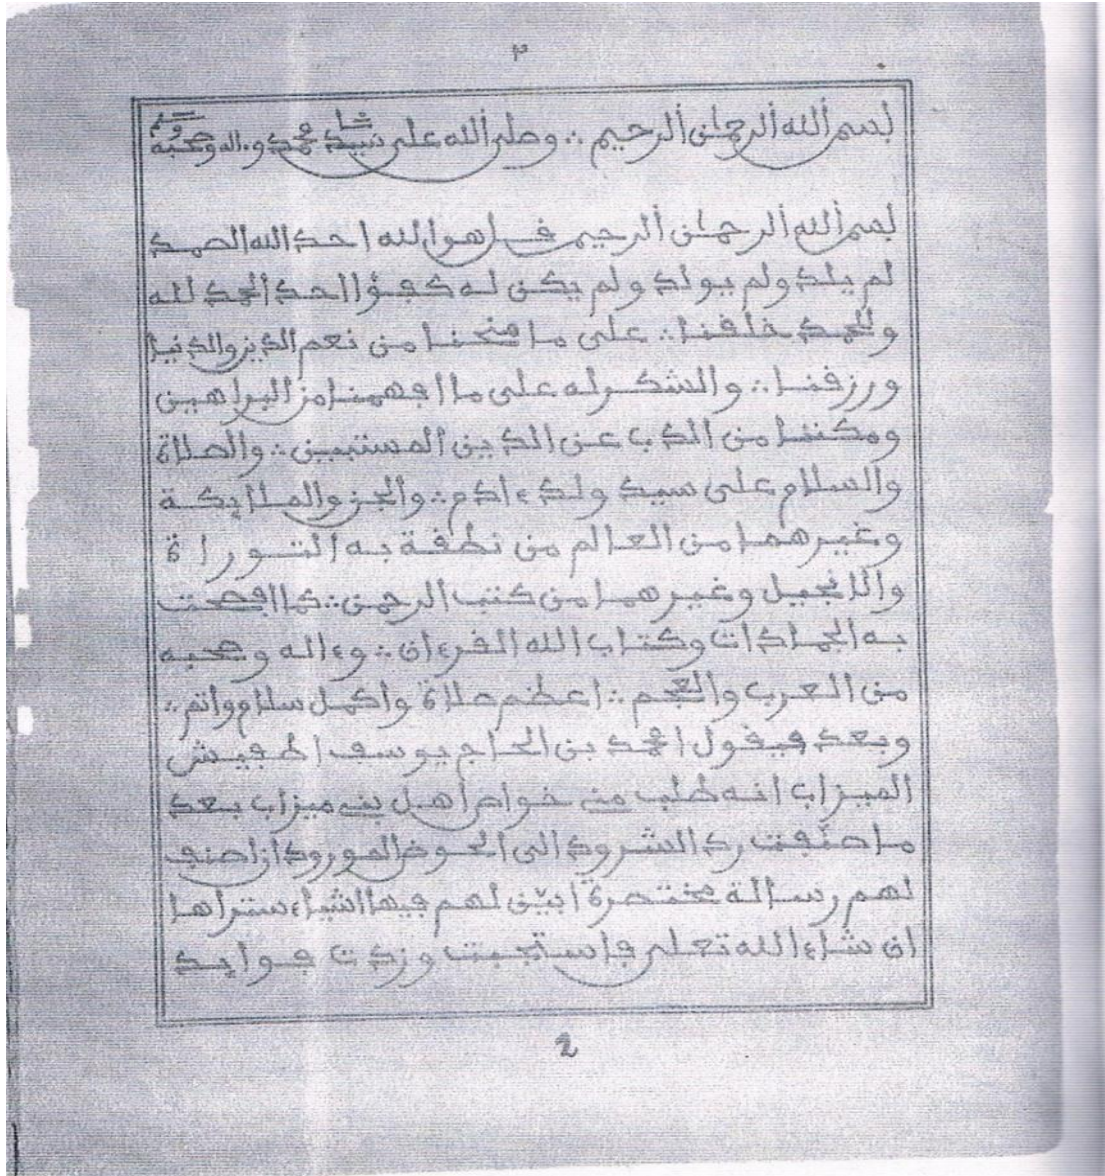 ٢
بسم الله الرحمان الرحيم ∴ وصلى الله على سيدنا محمد وءاله وصحبه وسلم
بسم الله الرحمان الرحيم قل هو الله احد الله الصمد
لم يلد ولم يولد ولم يكن له كفؤا احد الحمد لله
على ما منحنا من نعم الدين والدنيا
ورزقنا ∴ والشكر له على ما افهمنا من البراهين
ومكننا من الذب عن الدين المستبين ∴ والصلاة
والسلام على سيد ولد ءادم ∴ والجن والملايكة
وغيرهما من العالم من نطقة به التوراة
والانجيل وغيرهما من كتب الرحمن ∴ كما افصحت
به الجمادات وكتاب الله القرءان ∴ وءاله وصحبه
من العرب والعجم ∴ اعظم صلاة واكمل سلام واتم ∴
وبعد فيقول امحمد بن الحاج يوسف اطفيش
الميزابي انه طلب مني خواص أهل بني ميزاب بعد
ما صنّفت رد الشرود الى الحوض المورود ان اصنف
لهم رسالة مختصرة ابيّن لهم فيها اشياء ستراها
ان شاء الله تعلى فاستجبت وزدت فوايد
2